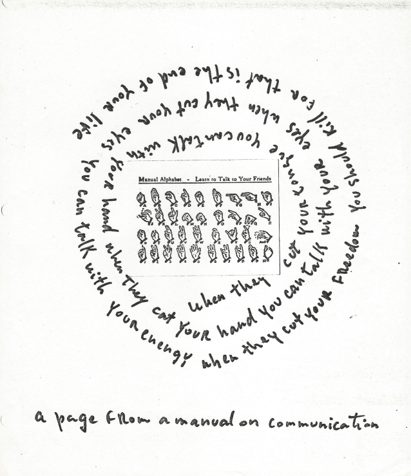 Manual Alphabet - Learn to Talk to Your Friends
when they cut your tongue you can talk with your hand when they cut your hand you can talk with your eyes when they cut your eyes you can talk with your energy when they cut your freedom you should kill for that is the end of your life
a page from a manual on communication